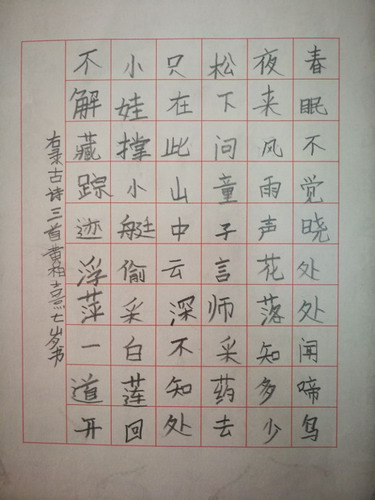 春眠不觉晓处处闻啼鸟
夜来风雨声花落知多少
松下问童子言师采药去
只在此山中云深不知处
小娃撑小艇偷采白莲回
不解藏踪迹浮萍一道开
右录古诗三首黄柏熹七岁书